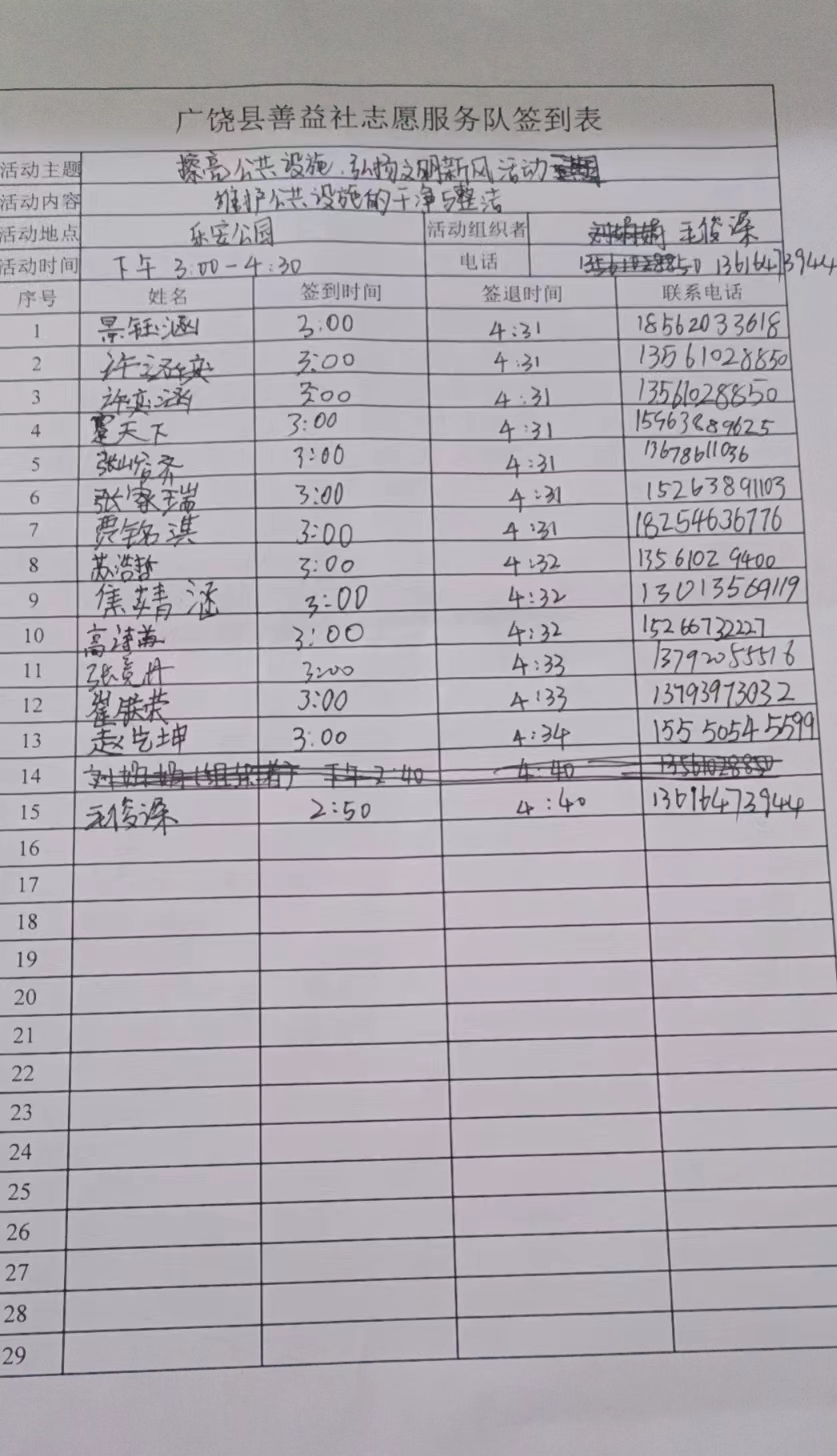 广饶县善益社志愿服务队签到表
活动主题 擦亮公共设施、弘扬文明新风活动
活动内容 维护公共设施的干净与整洁
活动地点 乐安公园 活动组织者 刘娟娟 王俊
活动时间 下午 3:00-4:30 电话 13561028850 13616473944
序号 姓名 签到时间 签退时间 联系电话
1 景钰涵 3:00 4:31 18562033618
2 许 3:00 4:31 13561028850
3 许奕涵 3:00 4:31 13561028850
4 天下 3:00 4:31 15963889625
5 张 3:00 4:31 13678611036
6 张家瑞 3:00 4:31 15263891103
7 贾铭淇 3:00 4:31 18254636776
8 苏浩哲 3:00 4:32 13561029400
9 焦婧涵 3:00 4:32 13013569119
10 高 3:00 4:32 15266732227
11 张竞丹 3:00 4:33 13792055516
12 崔 荣 3:00 4:33 13793973032
13 赵 坤 3:00 4:34 155 5054 5599
14 刘娟娟(组织者) 下午2:40 4:40 13561028850
15 王俊 2:50 4:40 13616473944
16
17
18
19
20
21
22
23
24
25
26
27
28
29